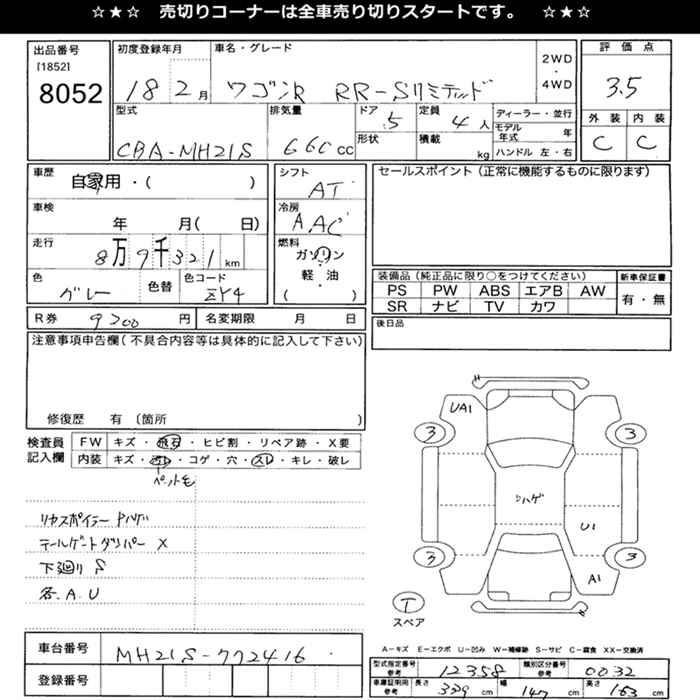 ☆★☆ 売切りコーナーは全車売り切りスタートです。 ☆★☆
出品番号 初度登録年月 車名・グレード 2WD・4WD 評価点
[1852]
8052 18 2月 ワゴンR RR-Sリミテッド 3.5
型式 排気量 ドア 定員 ディーラー・並行 外装 内装
CBA-MH21S 660cc 5 4人 モデル年式 年 C C
形状 積載 kg ハンドル 左・右
車歴 自家用・( ) シフト AT セールスポイント(正常に機能するものに限ります)
車検 年 月( 日) 冷房 AAC
走行 8万9千321km 燃料 ガソリン・軽油 ( )
色 グレー 色替 色コード ZY4
装備品(純正品に限り○をつけてください) 新車保証書
PS PW ABS エアB AW 有・無
SR ナビ TV カワ
R券 9200円 名変期限 月 日 後日品
注意事項申告欄(不具合内容等は具体的に記入して下さい)
修復歴 有 (箇所 )
検査員記入欄 FW キズ・飛石・ヒビ割・リペア跡・X要
内装 キズ・汚レ・コゲ・穴・スレ・キレ・破レ
ペット毛
リヤスポイラー Pハゲ
テールゲートダンパー X
下廻り S
各.A.U
UA1
3 3
ハゲ
U1
3 3
A1
T
スペア
A-キズ E-エクボ U-凹み W-補修跡 S-サビ C-腐食 XX-交換済
車台番号 MH21S-772416
登録番号
型式指定番号 参考 12358 類別区分番号 参考 0032
車庫証明用 参考 長さ 339cm 幅 147cm 高さ 163cm